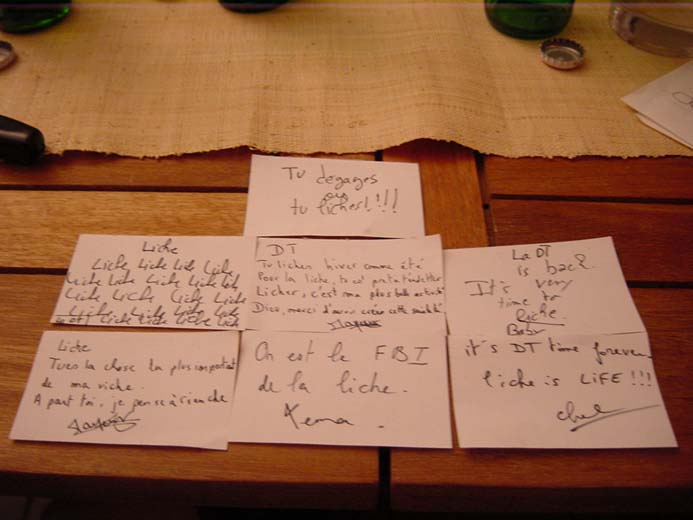 Tu dégages
ou
tu liches!!!!
Liche
Liche Liche Liche Liche
Liche Liche Liche Liche Liche
Liche Liche Liche Liche
Liche Liche Liche Liche
Liche Liche Liche Liche
DT
Tu liches hiver comme été
Pour la liche, tu es prêt à t'endetter
Licher, c'est ma plus belle
Dieu, merci d'avoir créer cette
La DT
is back.
It's very
time to
liche.
Liche
T'es la chose la plus important
de ma viche.
A part toi, je pense à rienche
On est le FBI
de la liche.
it's DT time forever
liche is LiFE !!!